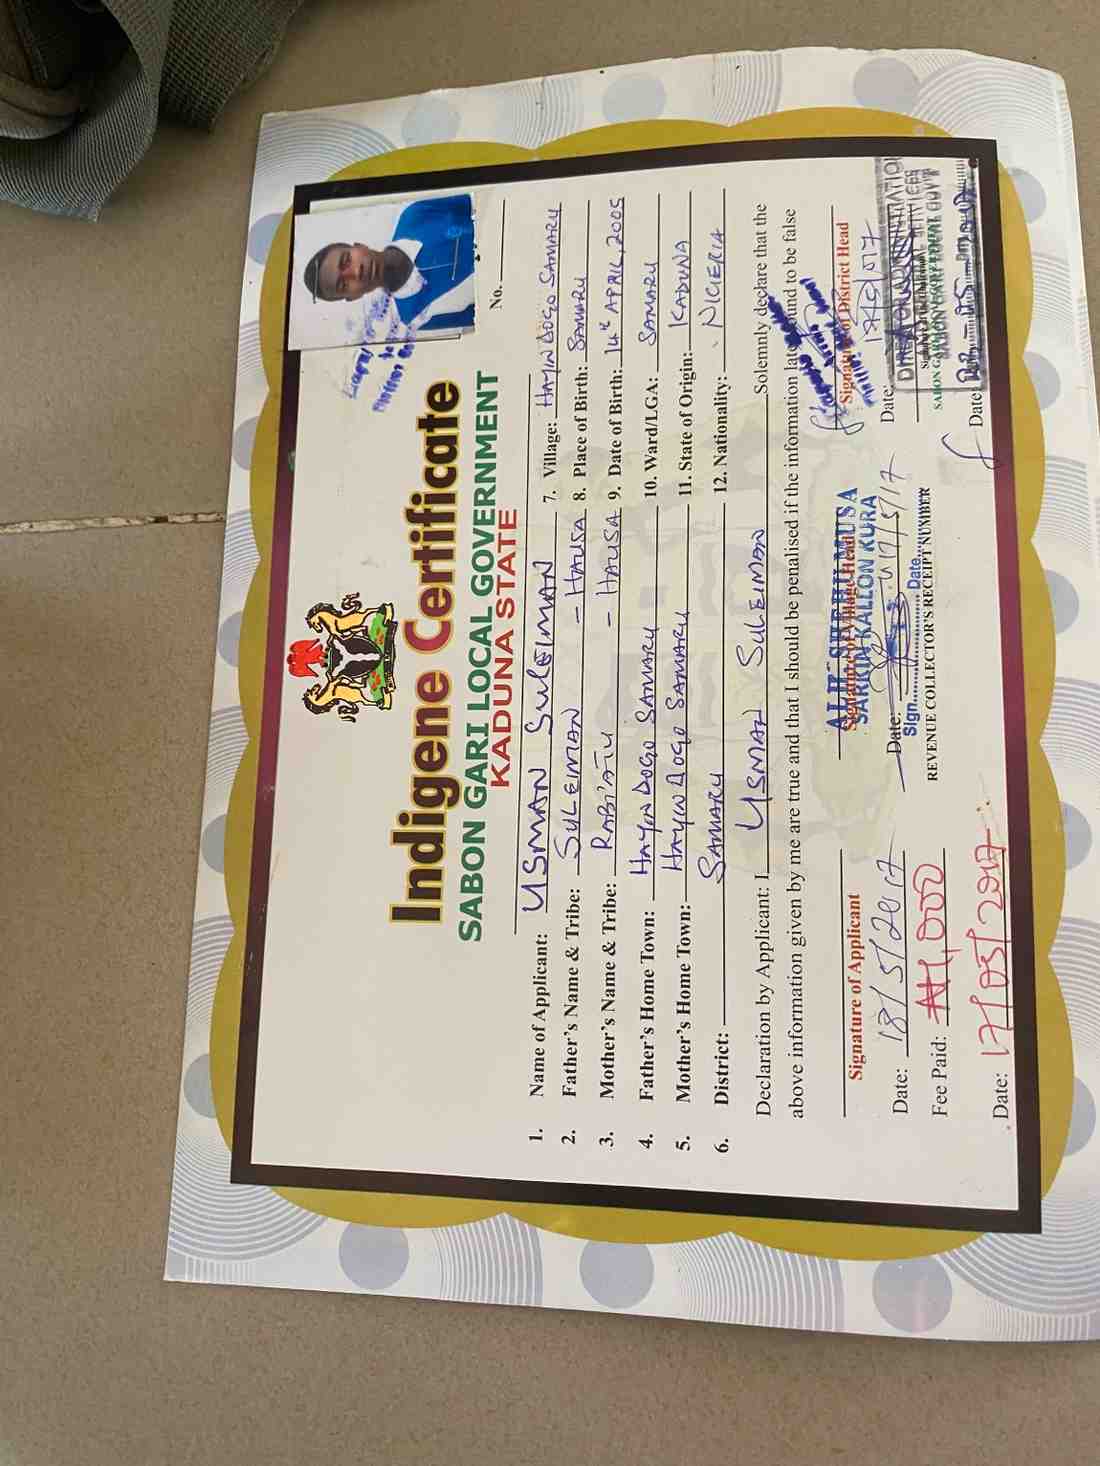 Indigene Certificate
SABON GARI LOCAL GOVERNMENT
KADUNA STATE
No.
1. Name of Applicant: USMAN SULEIMAN
7. Village: HAYIN DOGO SAMARU
2. Father's Name & Tribe: SULEIMAN - HAUSA
8. Place of Birth: SAMARU
3. Mother's Name & Tribe: RABI'ATU - HAUSA
9. Date of Birth: 14th APRIL, 2005
4. Father's Home Town: HAYIN DOGO SAMARU
10. Ward/LGA: SAMARU
5. Mother's Home Town: HAYIN DOGO SAMARU
11. State of Origin: KADUNA
6. District: SAMARU
12. Nationality: NIGERIA
Declaration by Applicant: I USMAN SULEIMAN Solemnly declare that the
above information given by me are true and that I should be penalised if the information later found to be false
Signature of Applicant
Date: 18/5/2017
ALH. SHEHU MUSA
Signature of Village Head
SARKIN KALLON KURA
Date: 17/5/17
Sign. Date
Signature of District Head
Date:
Fee Paid: ₦1,000
REVENUE COLLECTOR'S RECEIPT NUMBER
SABON GARI LOCAL GOV'T
Date: 17/05/2017
Date: